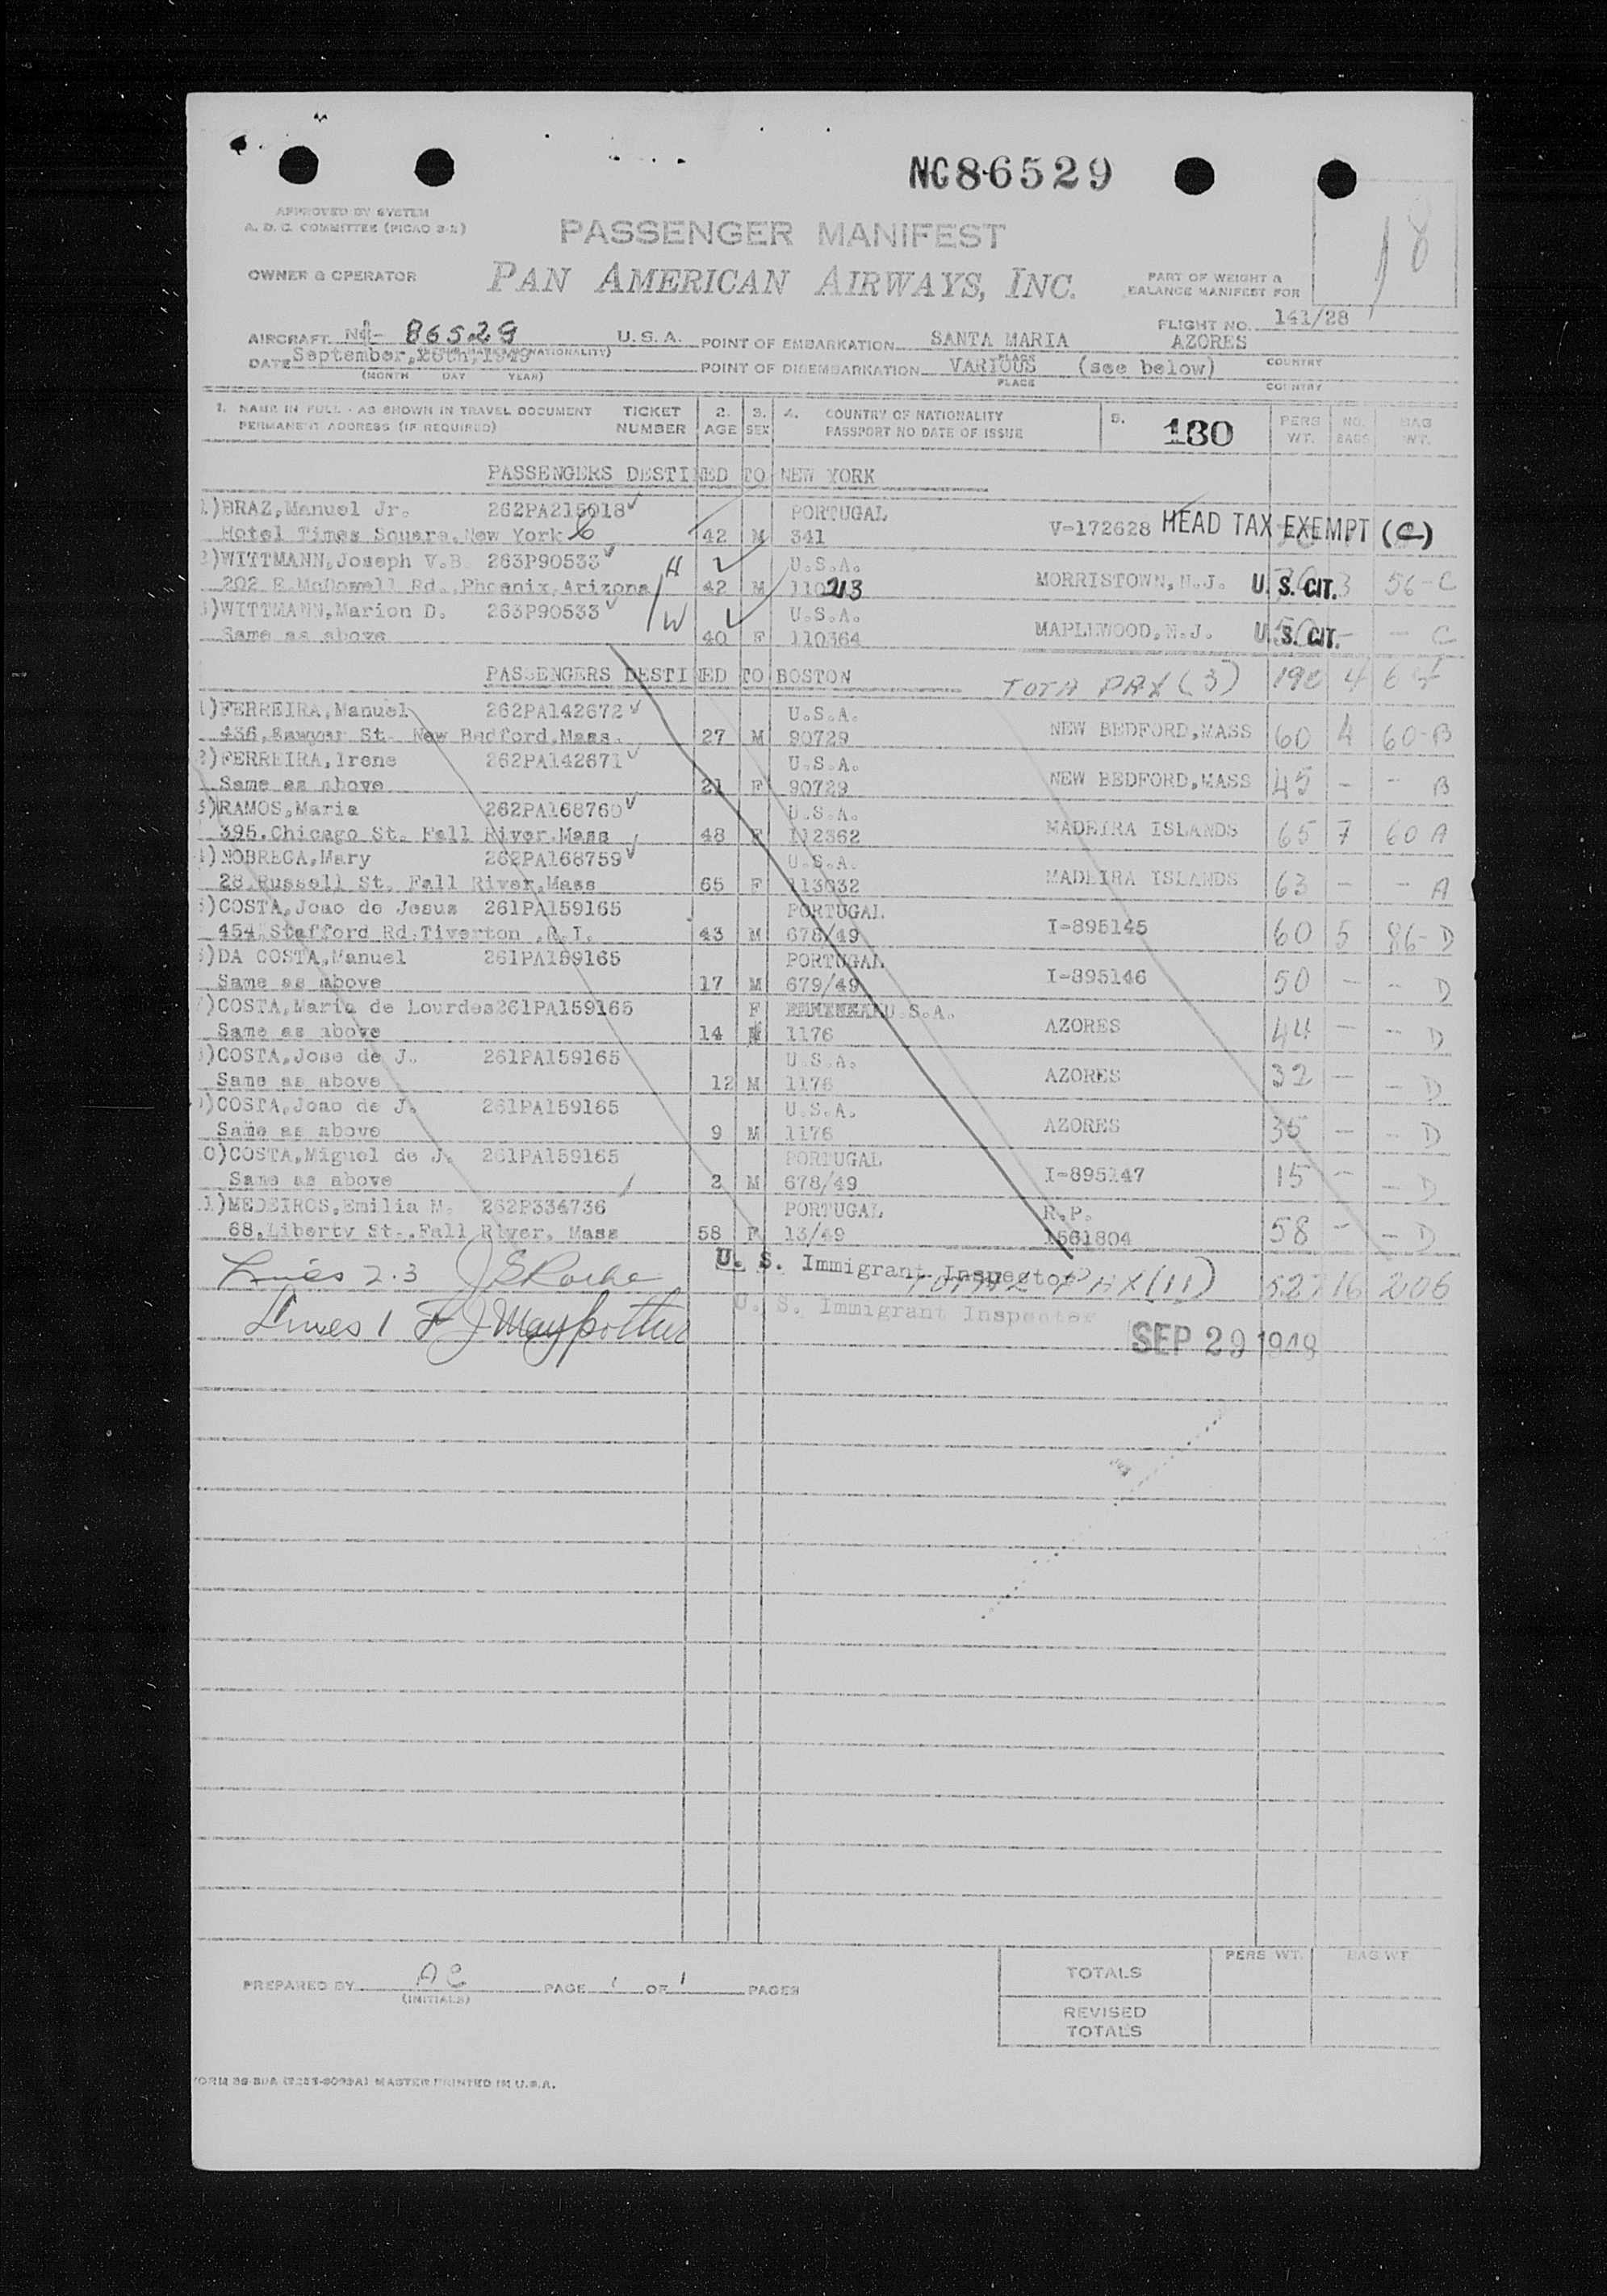 NC86529
APPROVED BY SYSTEM
A. D. C. COMMITTEE (PICAO 2-2)
PASSENGER MANIFEST
18
OWNER & OPERATOR
PAN AMERICAN AIRWAYS, INC.
PART OF WEIGHT &
BALANCE MANIFEST FOR
FLIGHT NO. 141/28
AIRCRAFT 86529 U.S.A. POINT OF EMBARKATION SANTA MARIA AZORES
PLACE COUNTRY
DATE September, 1949
(MONTH DAY YEAR)
POINT OF DISEMBARKATION VARIOUS (see below)
PLACE COUNTRY
1. NAME IN FULL - AS SHOWN IN TRAVEL DOCUMENT TICKET 2. 3. 4. COUNTRY OF NATIONALITY 5. 180 PERS NO. BAG
PERMANENT ADDRESS (IF REQUIRED) NUMBER AGE SEX PASSPORT NO DATE OF ISSUE WT. BAGS WT.
PASSENGERS DESTINED TO NEW YORK
1)BRAZ,Manuel Jr. PORTUGAL
Hotel Times Square,New York 42 M 341 V-172628 HEAD TAX EXEMPT (C)
2)WITTMANN,Joseph V.B. 263P90533 H U.S.A.
202 E.McDowell Rd.,Phoenix,Arizona 42 M MORRISTOWN,N.J. U.S. CIT. 3 56-C
3)WITTMANN,Marion D. 263P90533 W U.S.A.
Same as above 40 F 110364 MAPLEWOOD,N.J. U.S. CIT. - - C
PASSENGERS DESTINED TO BOSTON TOTA PAX (3) 190 4
1)FERREIRA,Manuel 262PA142672 U.S.A.
436,Sawyer St. New Bedford,Mass. 27 M 90729 NEW BEDFORD,MASS 60 4 60-B
2)FERREIRA,Irene 262PA142671 U.S.A.
Same as above 21 F 90729 NEW BEDFORD,MASS 45 - - B
3)RAMOS,Maria 262PA168760 U.S.A.
395,Chicago St. Fall River,Mass 48 F 112362 MADEIRA ISLANDS 65 7 60 A
4)NOBREGA,Mary 262PA168759 U.S.A.
28,Russell St. Fall River,Mass 65 F 113632 MADEIRA ISLANDS 63 - - A
5)COSTA,Joao de Jesus 261PA159165 PORTUGAL
454,Stafford Rd.Tiverton ,R.I. 43 M 678/49 I-895145 60 5 86-D
6)DA COSTA,Manuel 261PA159165 PORTUGAL
Same as above 17 M 679/49 I-895146 50 - - D
7)COSTA,Maria de Lourdes261PA159165 F U.S.A.
Same as above 14 1176 AZORES 44 - - D
8)COSTA,Jose de J. 261PA159165 U.S.A.
Same as above 12 M 1176 AZORES 32 - - D
9)COSTA,Joao de J. 261PA159165 U.S.A.
Same as above 9 M 1176 AZORES 35 - - D
10)COSTA,Miguel de J. 261PA159165 PORTUGAL
Same as above 2 M 678/49 I-895147 15 - - D
11)MEDEIROS,Emilia M. 262P334736 PORTUGAL R.P.
68,Liberty St.,Fall River, Mass 58 F 13/49 1561804 58 - - D
Lines 2.3 J S Roche U. S. Immigrant Inspector TOTAL PAX (11) 527 16 206
Lines 1 U. S. Immigrant Inspector
SEP 29 1949
PREPARED BY AC PAGE 1 OF 1 PAGES
(INITIALS)
PERS WT. BAG WT
TOTALS
REVISED
TOTALS
MASTER PRINTED IN U.S.A.